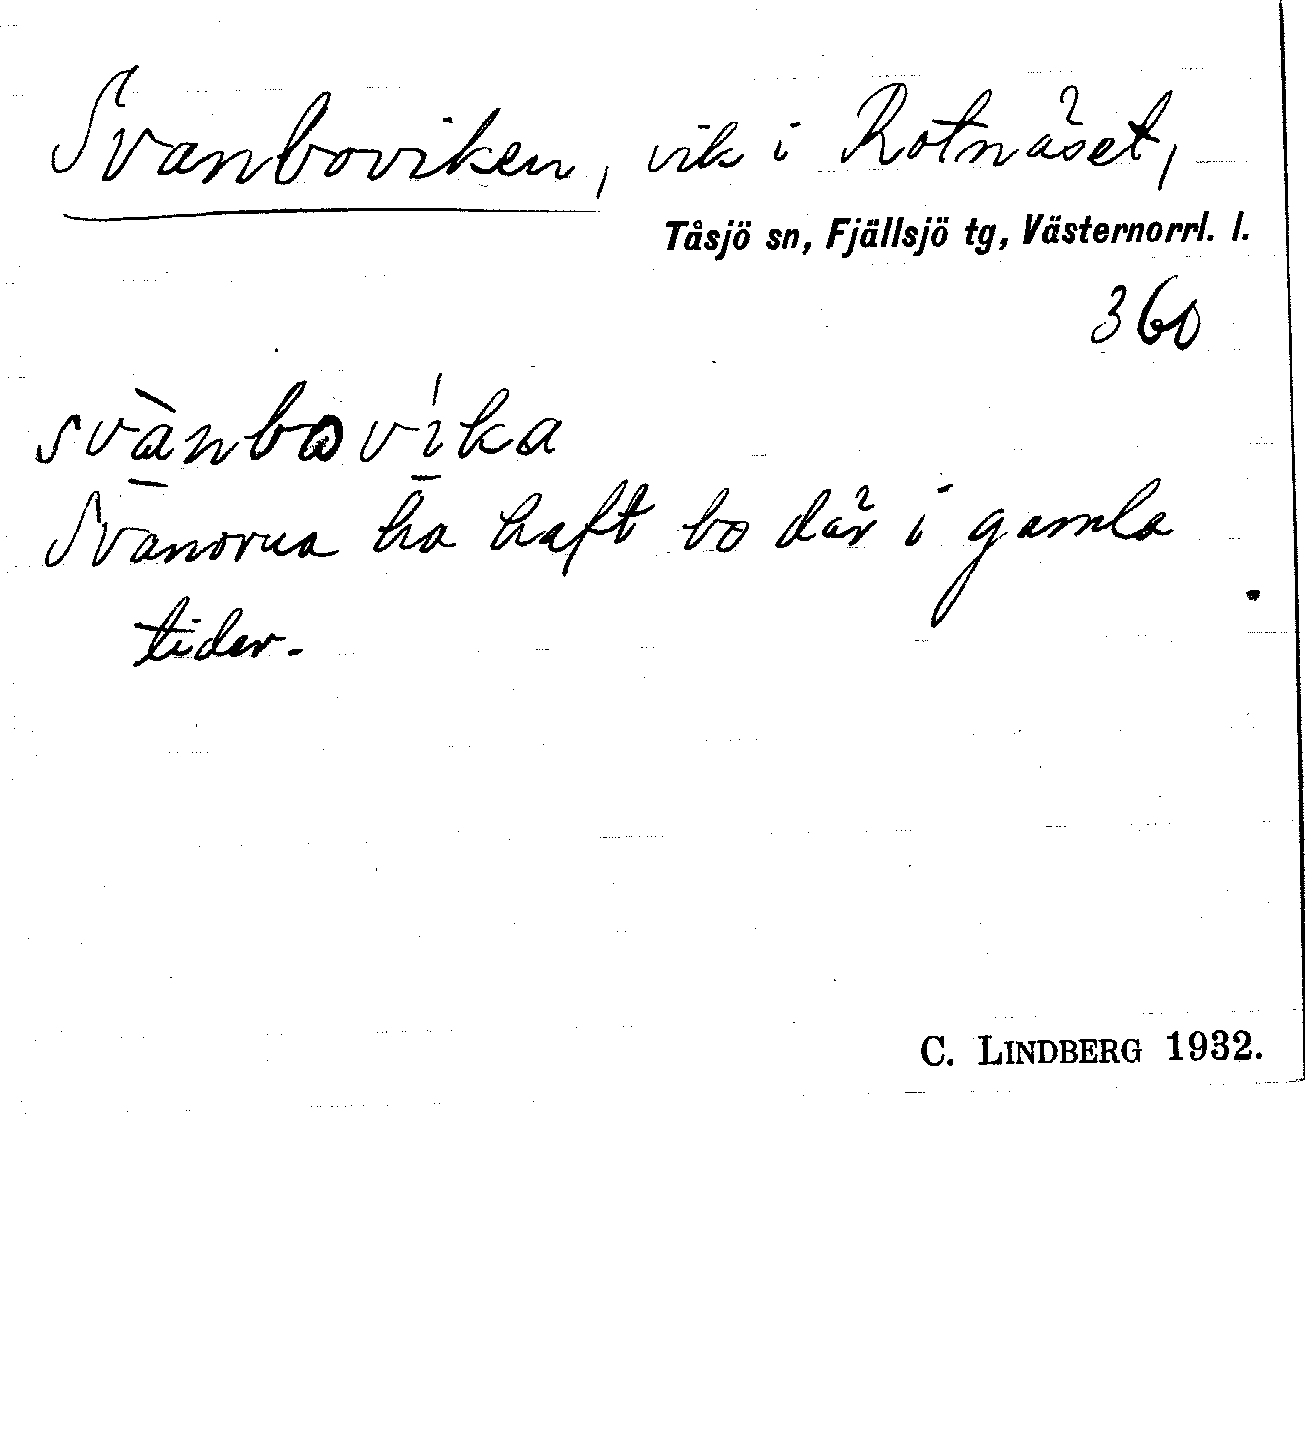 Svanboviken, vik i Rotnäset,
Tåsjö sn, Fjällsjö tg, Västernorrl. l.
360
svànbovíka
Svanorna ha haft bo där i gamla
tider.
C. LINDBERG 1932.